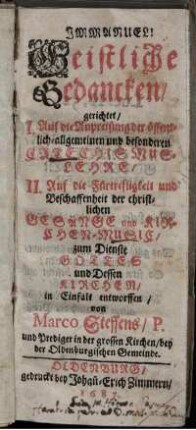 IMMANUEL!
Geistliche
Gedancken/
gerichtet/
I. Auf die Anpreisung der öffent-
lich-allgemeinen und besonderen
CATECHISMUS-
LEHRE/
II. Auf die Fürtrefligkeit und
Beschaffenheit der christ-
lichen
GESÄNGE und KIR-
CHEN-MUSIC/
zum Dienste
GOTTES
und Dessen
KIRCHEN/
in Einfalt entworffen/
von
Marco Steffens/ P.
und Prediger in der grossen Kirchen/ bey
der Oldenburgischen Gemeinde.
OLDENBURG/
gedruckt bey Johañ-Erich Zimmern/